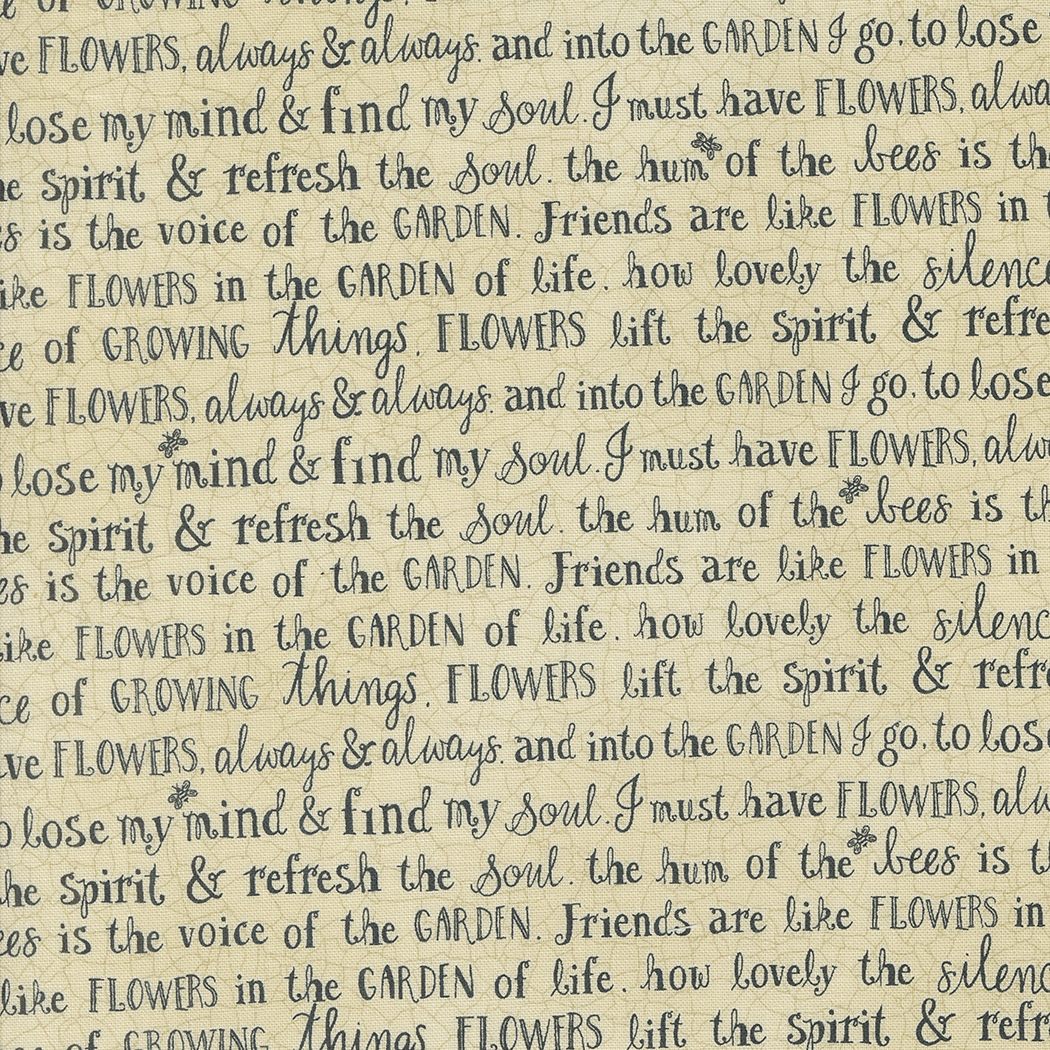 of GROWING things.
ve FLOWERS, always & always. and into the GARDEN I go, to lose
lose my mind & find my soul. I must have FLOWERS, alwa
he spirit & refresh the soul. the hum of the bees is th
es is the voice of the GARDEN. Friends are like FLOWERS in t
ike FLOWERS in the GARDEN of life. how lovely the silence
ce of GROWING things. FLOWERS lift the spirit & refre
ve FLOWERS, always & always. and into the GARDEN I go, to lose
o lose my mind & find my soul. I must have FLOWERS, alw
he spirit & refresh the soul. the hum of the bees is th
es is the voice of the GARDEN. Friends are like FLOWERS in
ike FLOWERS in the GARDEN of life. how lovely the silenc
ce of GROWING things. FLOWERS lift the spirit & refr
ave FLOWERS, always & always. and into the GARDEN I go, to lose
o lose my mind & find my soul. I must have FLOWERS, alw
the spirit & refresh the soul. the hum of the bees is t
ees is the voice of the GARDEN. Friends are like FLOWERS in
like FLOWERS in the GARDEN of life. how lovely the silenc
of GROWING things. FLOWERS lift the spirit & refr